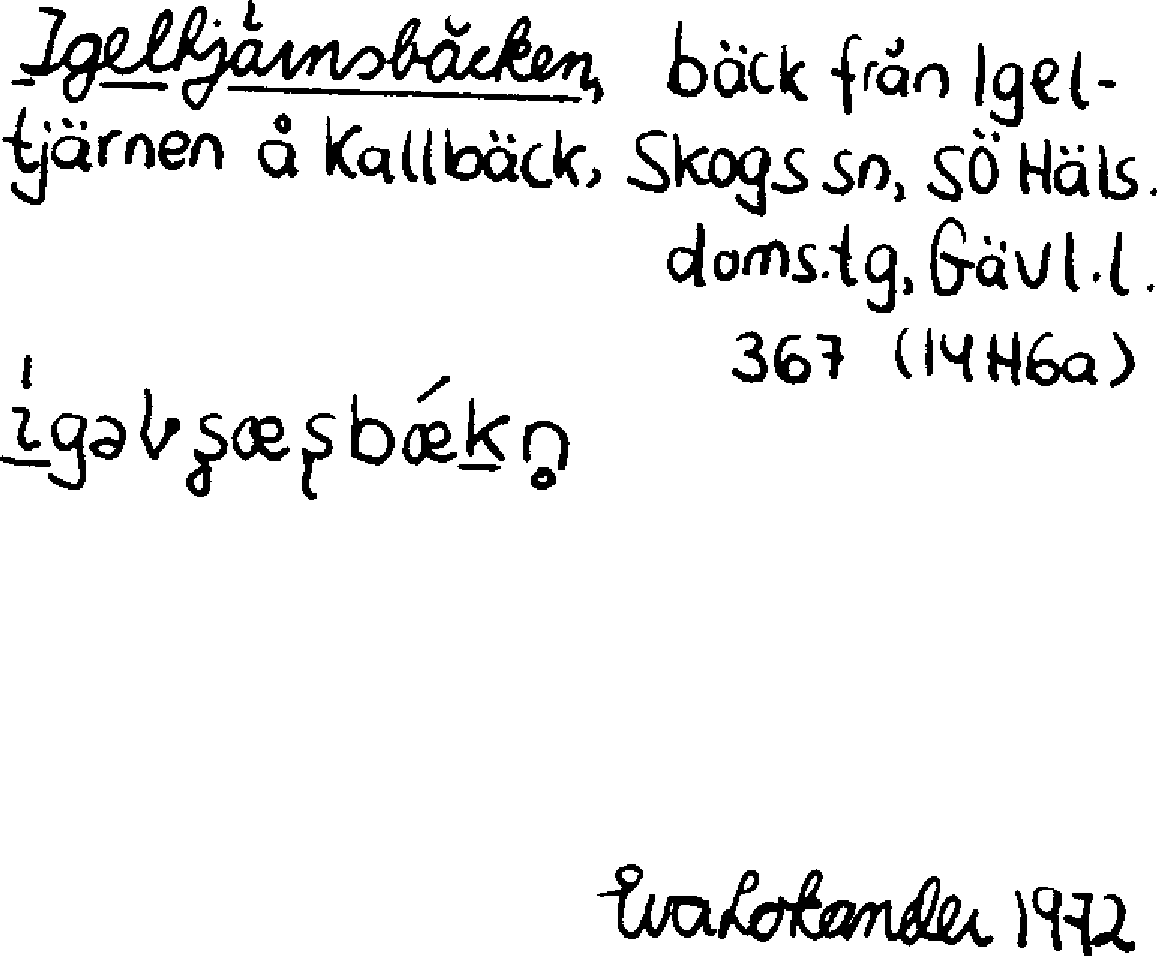 Igeltjärnsbäcken, bäck från Igel-
tjärnen å Kallbäck, Skogs sn, SÖ Häls.
doms.tg, Gävl.l.
367 (14H6a)
Eva Lokander 1972